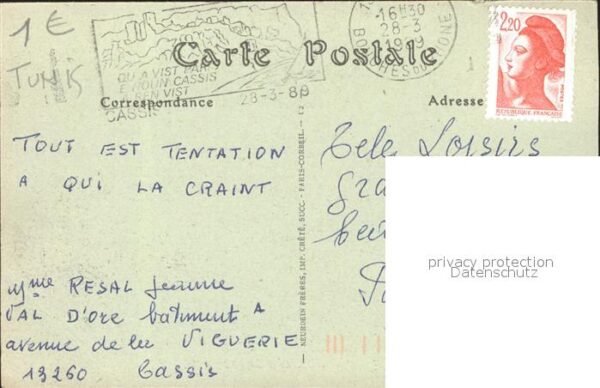 1€
TUNIS
16H30
28-3
1989
BOUCHES DU RHONE
2,20
REPUBLIQUE FRANÇAISE
Carte Postale
QU A VIST PARIS
E NOUN CASSIS
A REN VIST
CASSIS
28-3-89
Correspondance
Adresse
TOUT EST TENTATION
A QUI LA CRAINT
Mme RESAL Jeanne
VAL D'Ore bâtiment A
avenue de la VIGUERIE
13260 Cassis
NEURDEIN FRÈRES, IMP. CRÉTÉ, SUCC. - PARIS-CORBEIL.
Tele Loisirs
privacy protection
Datenschutz